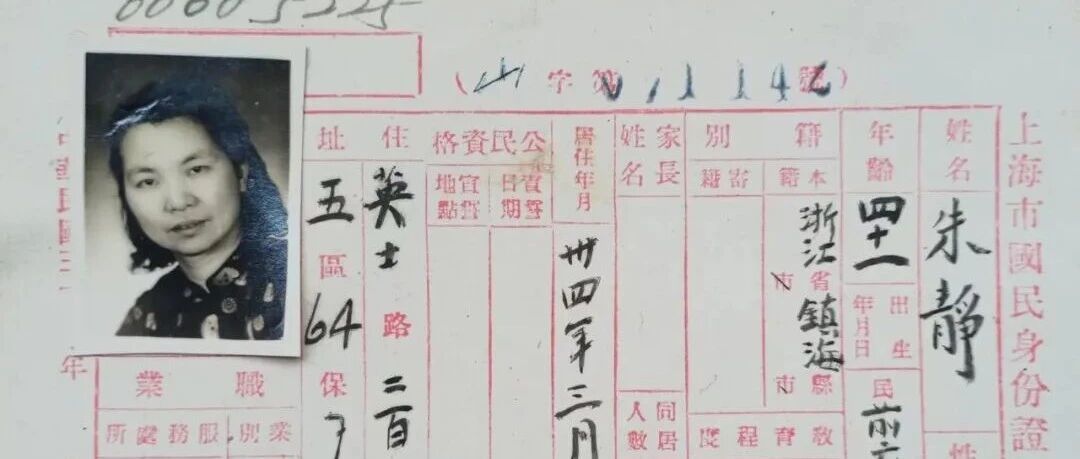 00605325
(山字第01142號)
上海市國民身份證
姓名
朱靜
性
年齡
四十一
出生年月日
民前六
籍別
本籍
浙江省市鎮海縣市
寄籍
教育程度
家長姓名
同居人數
居住年月
卅四年三月
公民資格
宣誓日期
宣誓地點
住址
英士路二百
五區64保7
職業
業別
服務處所
年